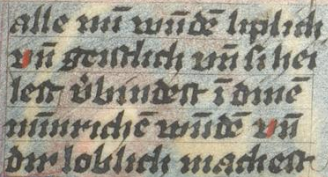 alle mī wūdē liplich
vn̄ geistlich vn̄ si hei
lest v̄bindest ī dinē
mīnrichē wūdē vn̄
dir loblich machest